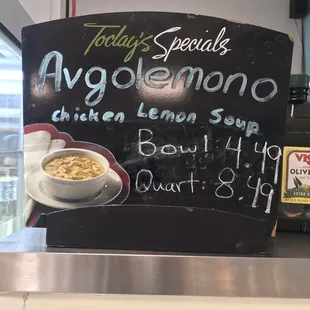 Today's Specials
Avgolemono
chicken Lemon Soup
Bowl: 4.49
Quart: 8.49
OLIVE